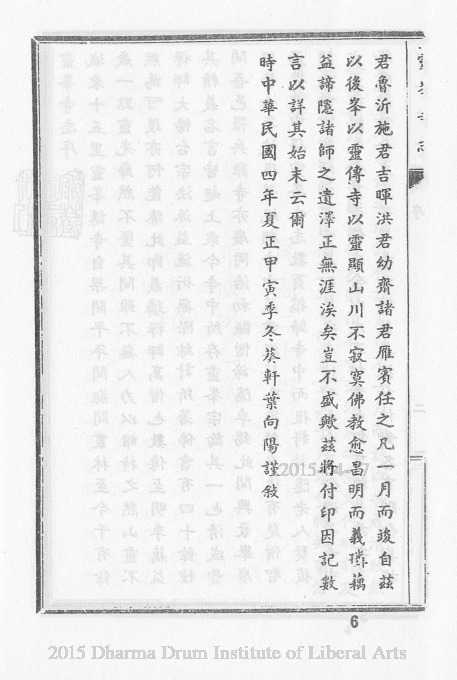 君魯沂施君吉暉洪君幼齋諸君雁賓任之凡一月而竣自茲
以後峯以靈傳寺以靈顯山川不寂寞佛教愈昌明而義璘藕
益諦隱諸師之遺澤正無涯涘矣豈不盛歟茲將付印因記數
言以詳其始末云爾
時中華民國四年夏正甲寅季冬葵軒葉向陽謹敍
6
2015 Dharma Drum Institute of Liberal Arts